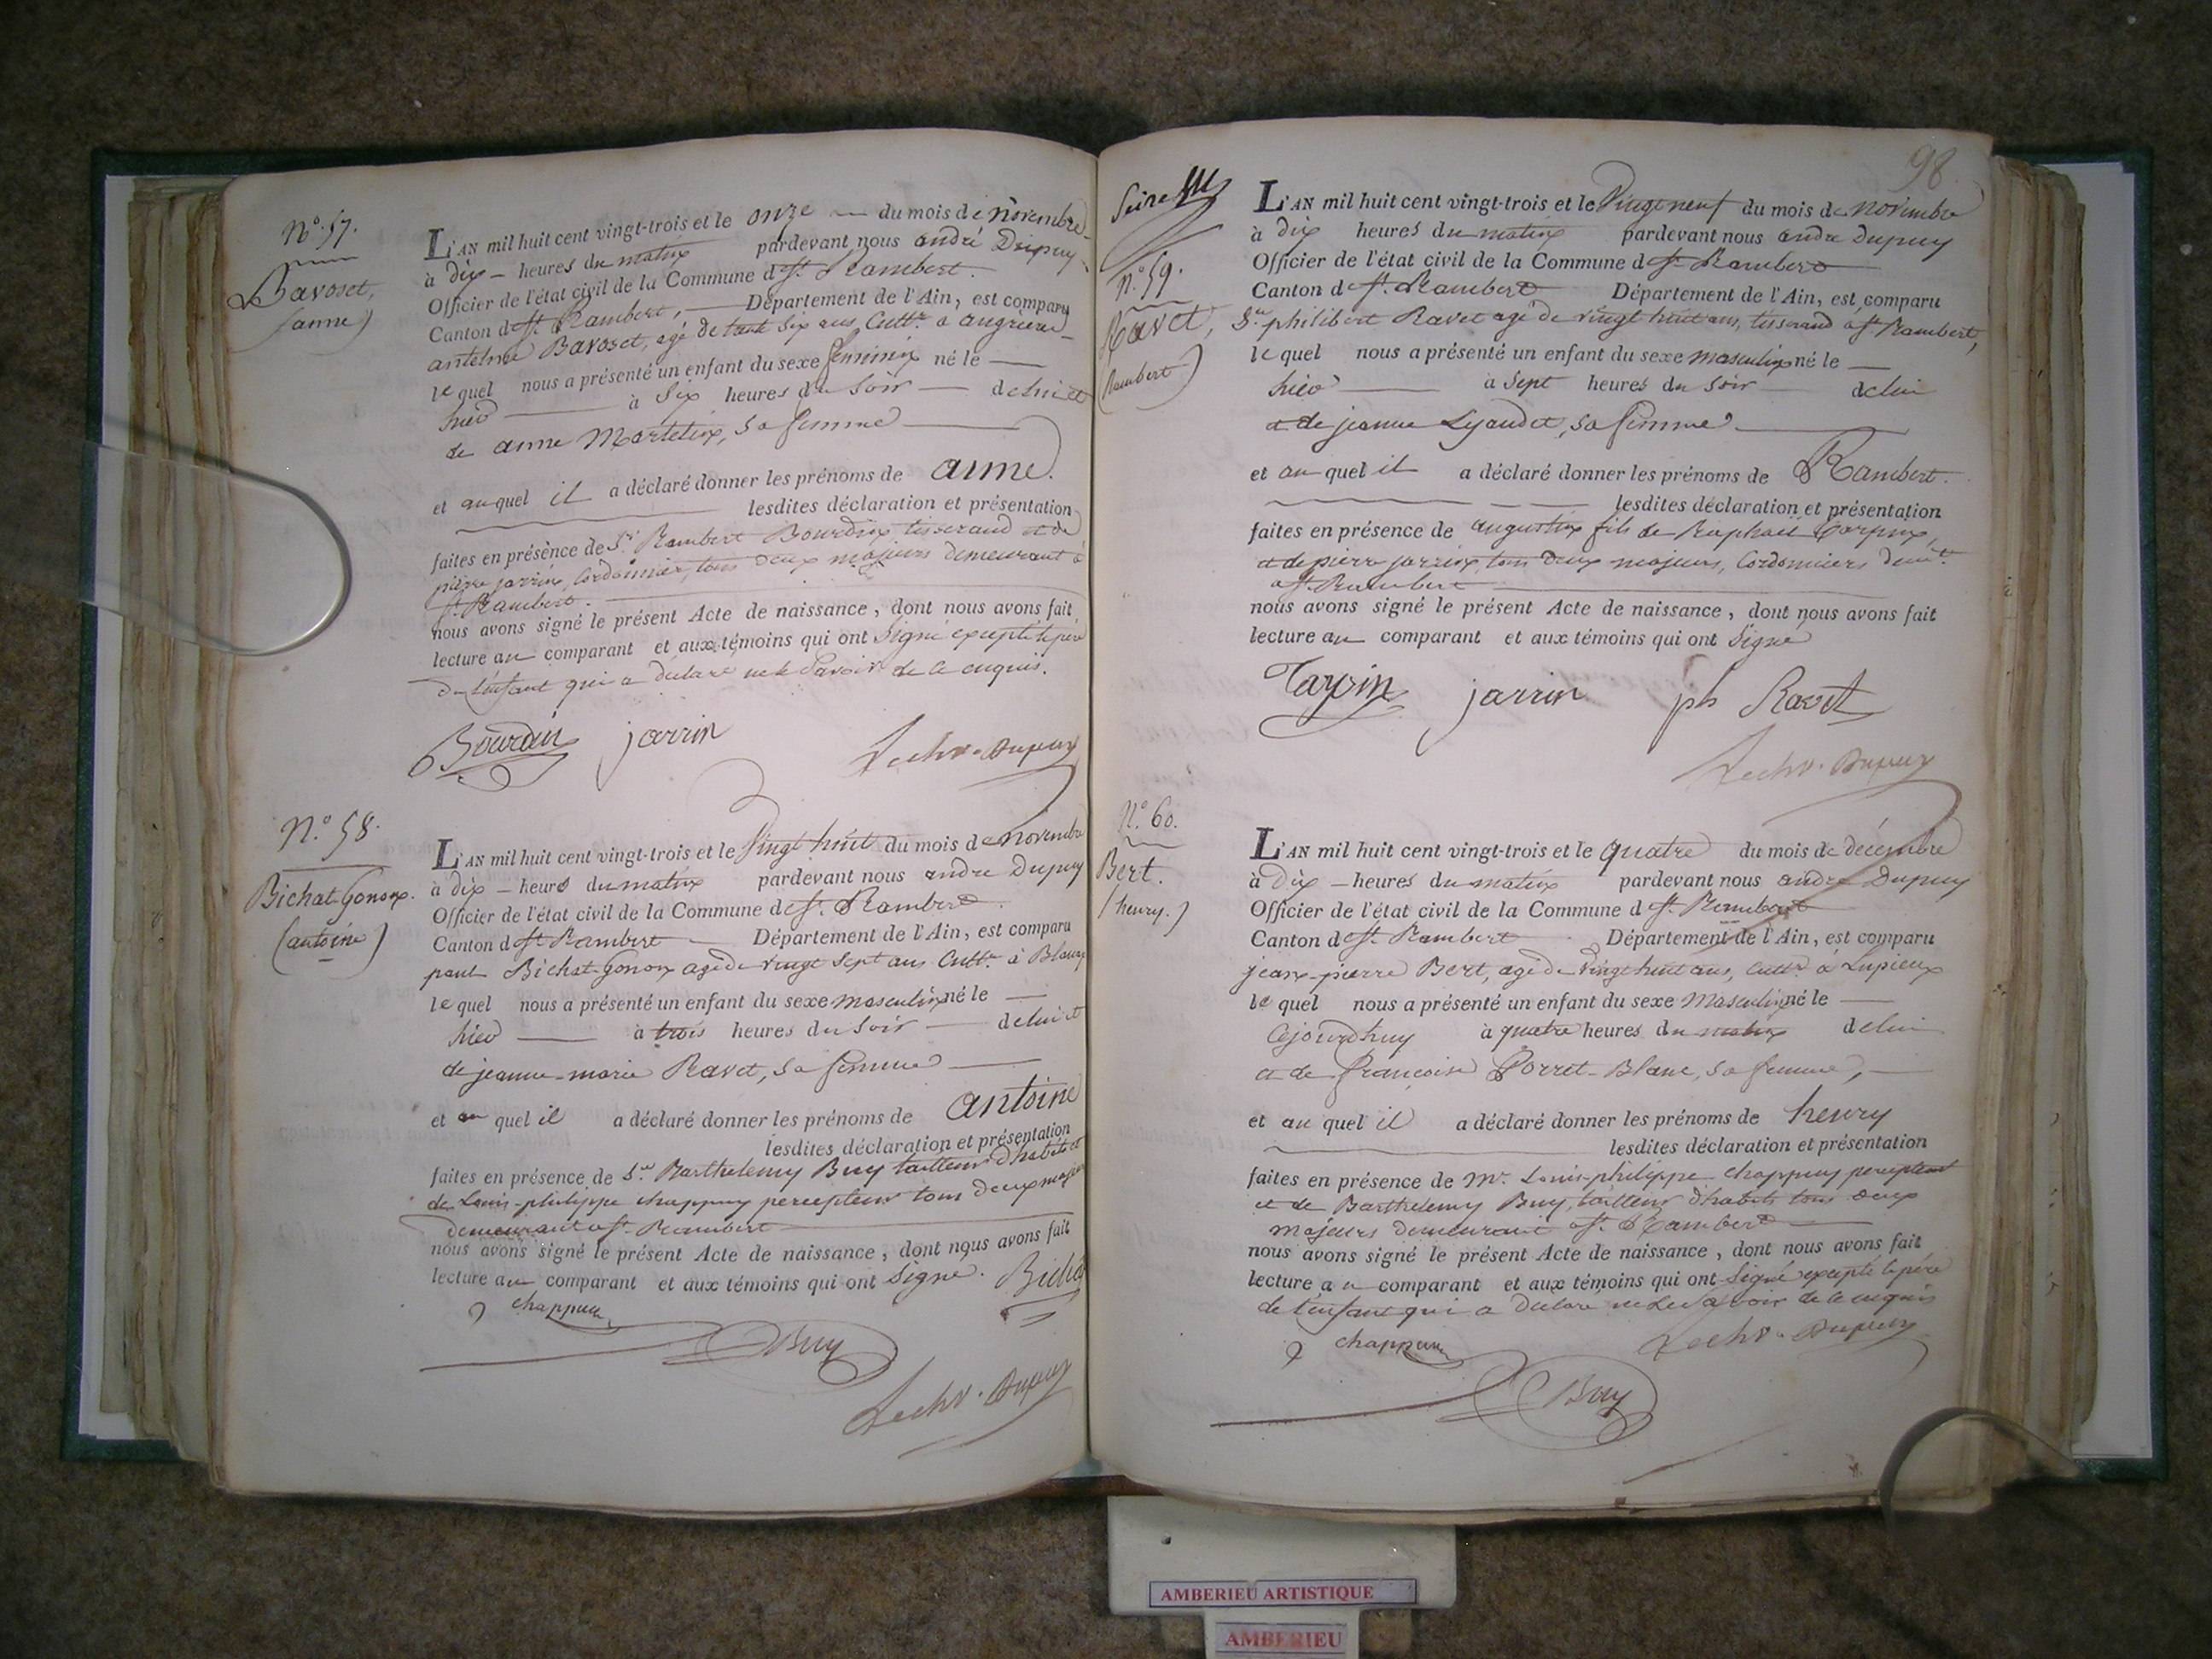 N.° 57.
Bavoset,
(anne)
L'AN mil huit cent vingt-trois et le onze du mois de novembre
à dix heures du matin pardevant nous andré Dupuy
Officier de l'état civil de la Commune de St. Rambert.
Canton de St. Rambert, Département de l'Ain, est comparu
antelme Bavoset, agé de trente six ans Cultr. a angrieres
lequel nous a présenté un enfant du sexe feminin né le
hier à Six heures du Soir de lui et
de anne Martelin, sa femme
et auquel il a déclaré donner les prénoms de anne.
lesdites déclaration et présentation
faites en présence de Sr. Rambert Bourdin tisserand et de
pierre jarrin, Cordonnier, tous deux majeurs demeurant à
St. Rambert.
nous avons signé le présent Acte de naissance, dont nous avons fait
lecture au comparant et aux témoins qui ont Signé excepté le père
de l'enfant qui a déclaré ne le Savoir de ce enquis.
Bourdin jarrin
Dupuy
N.° 58.
Bichat-Gonon.
(antoine)
L'AN mil huit cent vingt-trois et le Vingt huit du mois de novembre
à dix heures du matin pardevant nous andre Dupuy
Officier de l'état civil de la Commune de St. Rambert.
Canton de St. Rambert Département de l'Ain, est comparu
paul Bichat-Gonon agé de vingt Sept ans Cultr. à Blanaz
lequel nous a présenté un enfant du sexe masculin né le
hier à trois heures du Soir de lui et
de jeanne-marie Ravet, sa femme
et au quel il a déclaré donner les prénoms de antoine
lesdites déclaration et présentation
faites en présence de Sr. Barthelemy Buy tailleur d'habits et
de Louis-philippe chappuy percepteur tous deux majeurs
demeurant a St. Rambert
nous avons signé le présent Acte de naissance, dont nous avons fait
lecture au comparant et aux témoins qui ont Signé. Bichat
chappuy
Buy
Dupuy
98
N.° 59.
Ravet,
(Rambert)
L'AN mil huit cent vingt-trois et le Vingt neuf du mois de novembre
à dix heures du matin pardevant nous andre Dupuy
Officier de l'état civil de la Commune de St. Rambert
Canton de St. Rambert Département de l'Ain, est comparu
Sr. philibert Ravet agé de vingt huit ans, tisserand à St. Rambert,
lequel nous a présenté un enfant du sexe masculin né le
hier à Sept heures du Soir de lui
et de jeanne Lyaudet, sa femme
et au quel il a déclaré donner les prénoms de Rambert.
lesdites déclaration et présentation
faites en présence de augustin fils de Raphael Tarpin,
et de pierre jarrin, tous deux majeurs, Cordonniers demt.
a St. Rambert
nous avons signé le présent Acte de naissance, dont nous avons fait
lecture au comparant et aux témoins qui ont Signé
Tarpin jarrin ph Ravet
Dupuy
N.° 60.
Bert.
(henry.)
L'AN mil huit cent vingt-trois et le quatre du mois de décembre
à Dix heures du matin pardevant nous andre Dupuy
Officier de l'état civil de la Commune de St. Rambert
Canton de St. Rambert Département de l'Ain, est comparu
jean-pierre Bert, agé de Vingt huit ans, Cultr. à Lupieux
le quel nous a présenté un enfant du sexe Masculin né le
Cejourdhuy à quatre heures du matin de lui
et de françoise Porret-Blanc, sa femme,
et au quel il a déclaré donner les prénoms de henry
lesdites déclaration et présentation
faites en présence de Mr. Louis-philippe chappuy percepteur
et de Barthelemy Buy, tailleur d'habits tous deux
majeurs demeurant a St. Rambert
nous avons signé le présent Acte de naissance, dont nous avons fait
lecture au comparant et aux témoins qui ont Signé excepté le père
de l'enfant qui a déclaré ne le Savoir de ce enquis
chappuy Dupuy
Buy
AMBERIEU ARTISTIQUE
AMBERIEU